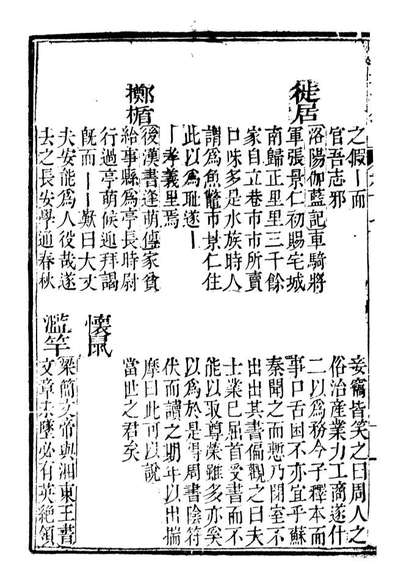 之假丨而
官吾志邪
徙居
洛陽伽藍記車騎將
軍張景仁初賜宅城
南歸正里里三千餘
家自立巷市市所賣
口味多是水族時人
謂爲魚鱉市景仁住
此以爲恥遂丨
丨孝義里焉
擲楯
後漢書逢萌傳家貧
給事縣爲亭長時尉
行過亭萌候迎拜謁
旣而丨丨歎曰大丈
夫安能爲人役哉遂
去之長安學通春秋
妾竊皆笑之曰周人之
俗治產業力工商逐什
二以爲務今子釋本而
事口舌困不亦宜乎蘇
秦聞之而慙乃閉室不
出出其書徧觀之曰夫
士業已屈首受書而不
能以取尊榮雖多亦奚
以爲於是得周書陰符
伏而讀之期年以出揣
摩曰此可以說
當世之君矣
懷鼠
濫竽
梁簡文帝與湘東王書
文章未墜必有英絶領